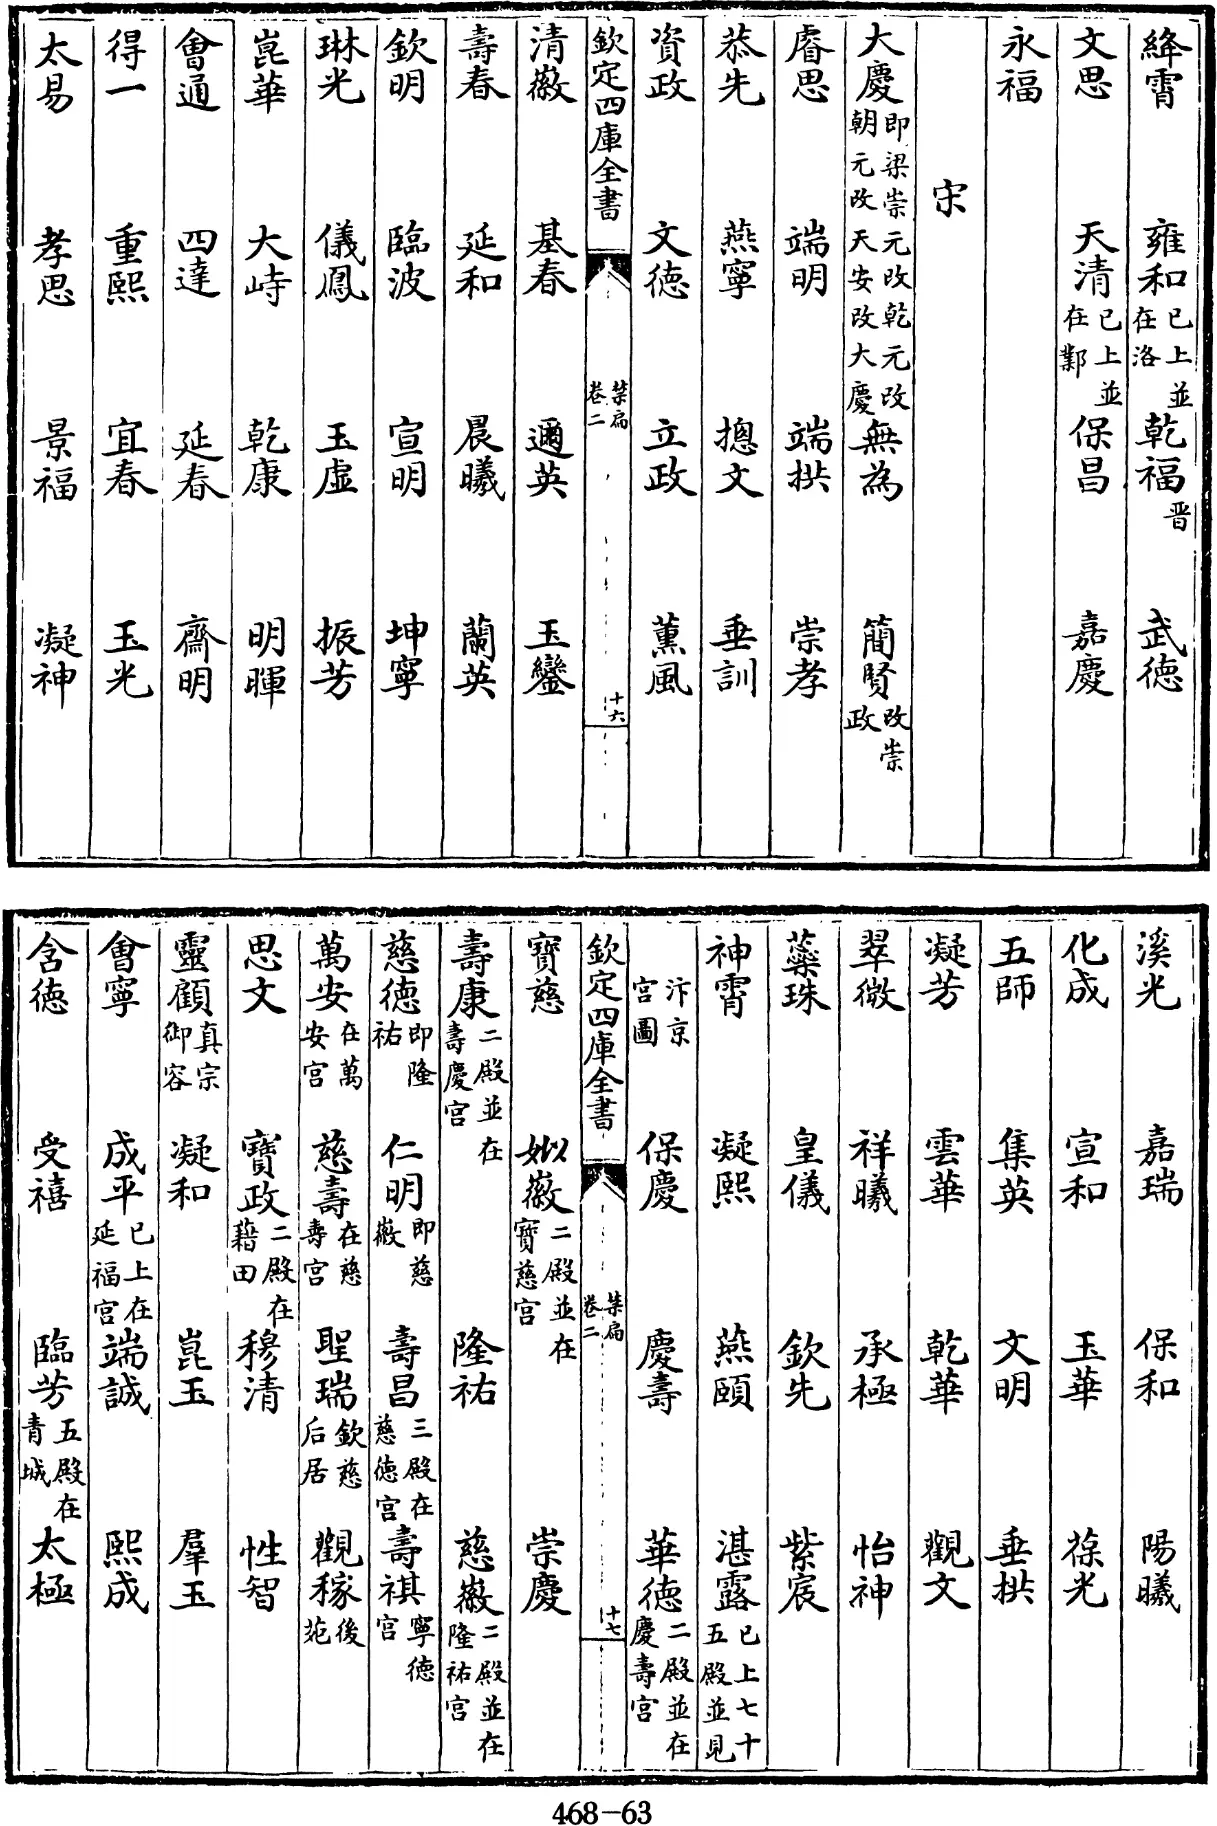 絳霄 雍和已上並在洛 乾福晋 武德
文思 天清已上並在鄴 保昌 嘉慶
永福
宋
大慶即梁崇元改乾元改朝元改天安改大慶 無為 簡賢改崇政
睿思 端明 端拱 崇孝
恭先 燕寧 摠文 垂訓
資政 文德 立政 薰風
欽定四庫全書 禁扁卷二 十六
清徽 基春 邇英 玉鑾
壽春 延和 晨曦 蘭英
欽明 臨波 宣明 坤寧
琳光 儀鳳 玉虛 振芳
崑華 大峙 乾康 明暉
會通 四達 延春 齋明
得一 重熙 宜春 玉光
太易 孝思 景福 凝神
溪光 嘉瑞 保和 陽曦
化成 宣和 玉華 葆光
五師 集英 文明 垂拱
凝芳 雲華 乾華 觀文
翠微 祥曦 承極 怡神
蘂珠 皇儀 欽先 紫宸
神霄 凝熙 燕頤 湛露已上七十五殿並見
汴京宫圖 保慶 慶壽 華德二殿並在慶壽宫
欽定四庫全書 禁扁卷二 十七
寶慈 姒徽二殿並在寶慈宫 崇慶
壽康二殿並在壽慶宫 隆祐 慈徽二殿並在隆祐宫
慈德即隆祐 仁明即慈徽 壽昌三殿在慈德宫 壽祺寧德宫
萬安在萬安宫 慈壽在慈壽宫 聖瑞欽慈后居 觀稼後苑
思文 寶政二殿在藉田 穆清 性智
靈顧真宗御容 凝和 崑玉 羣玉
會寧 成平已上在延福宫 端誠 熙成
含德 受禧 臨芳五殿在青城 太極
468-63